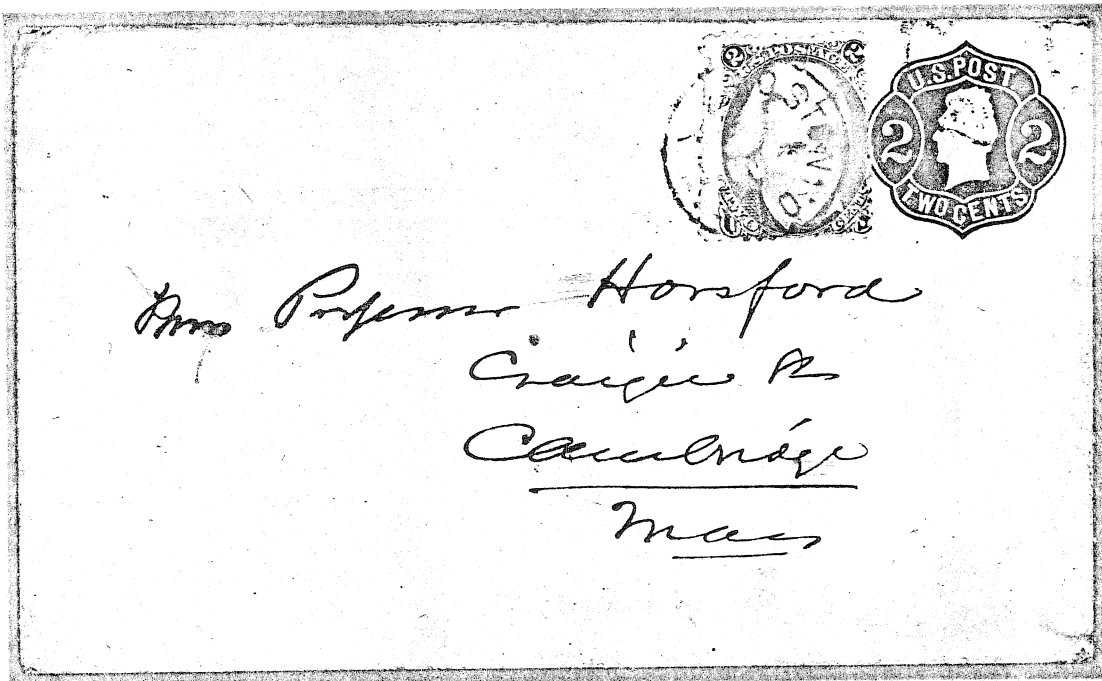 2 POSTAGE 2
U.S. POST
2 2
TWO CENTS
Professor Horsford
Craigie St
Cambridge
Mass